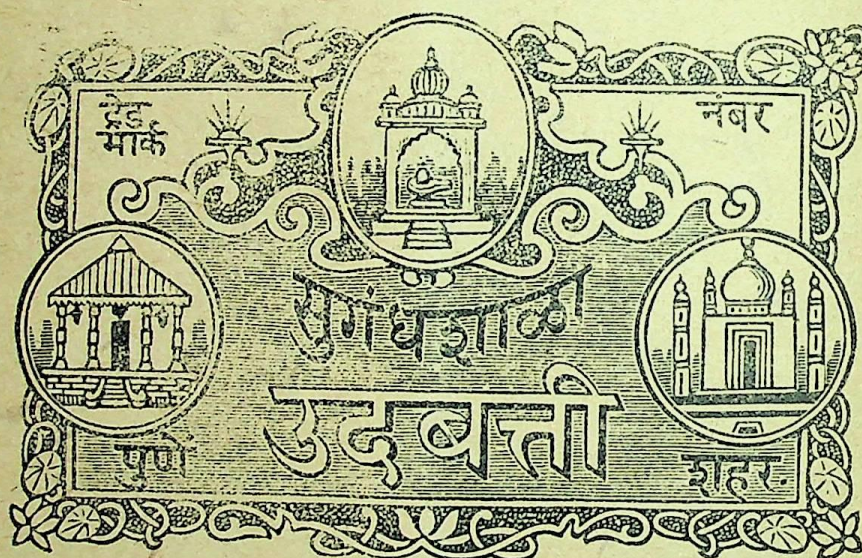 ट्रेड
मार्क
नंबर
सुगंधशाळा
उदबत्ती
पुणें
शहर.